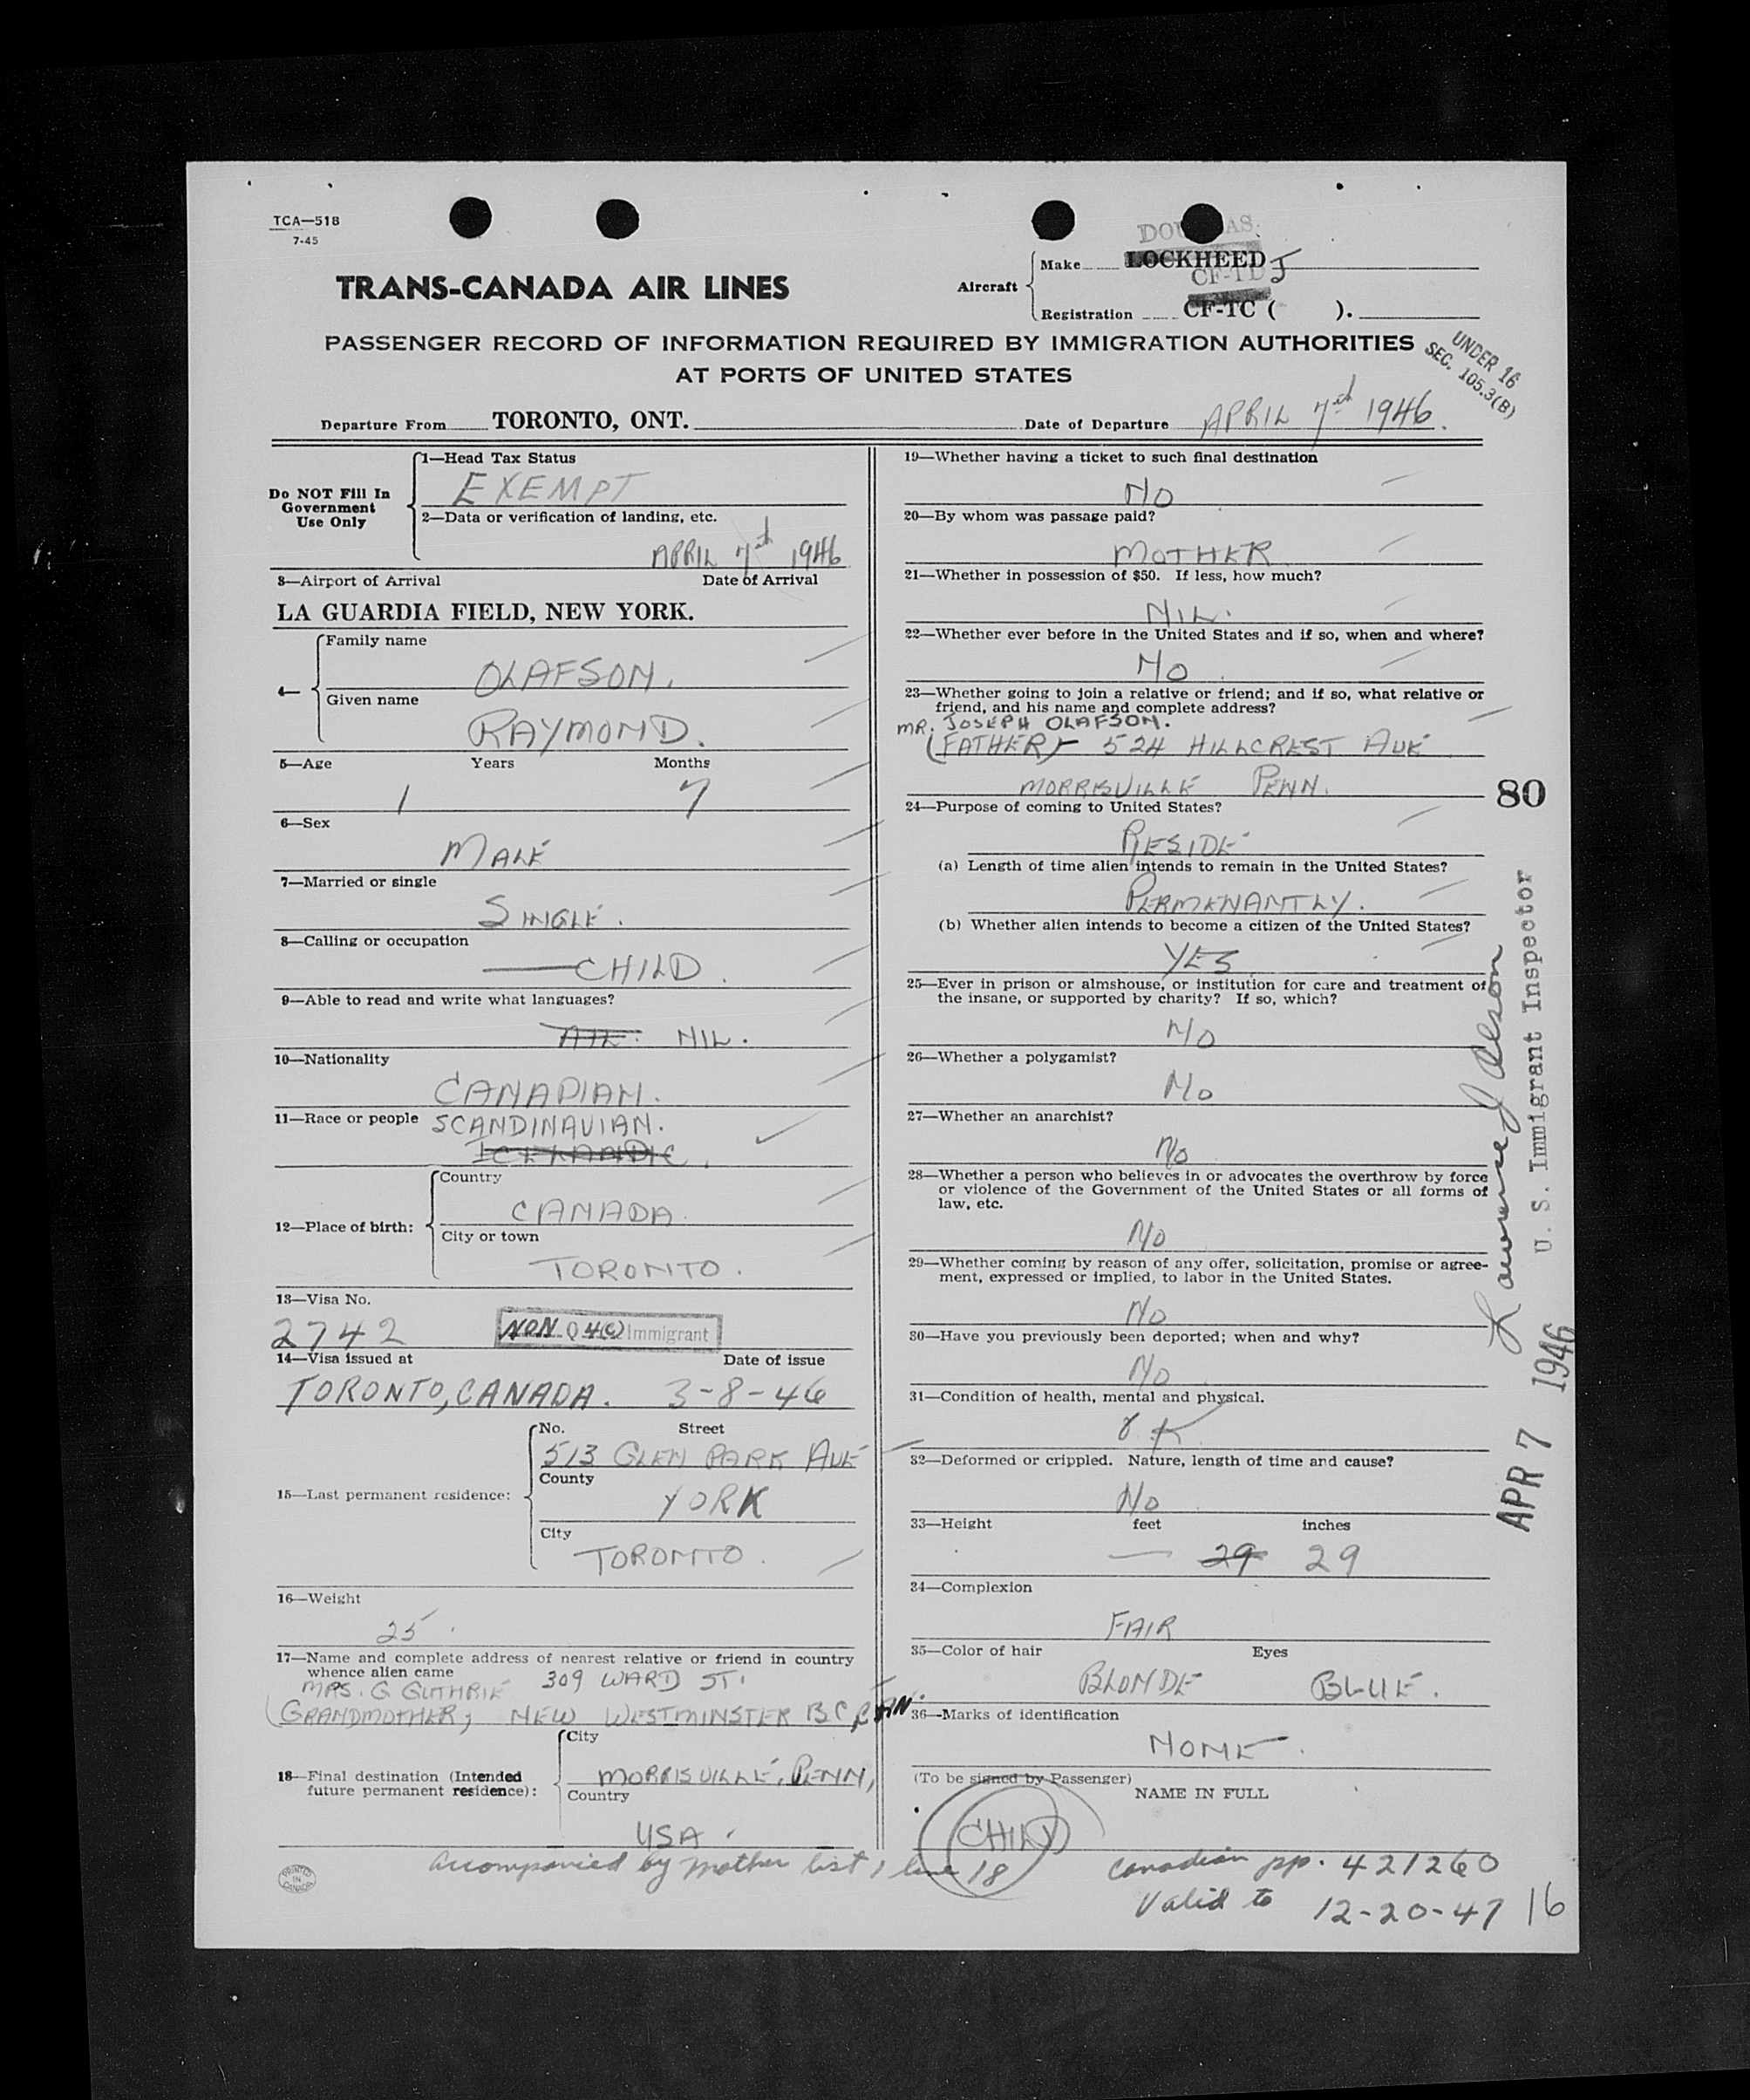 TCA—518
7-45
DOUGLAS
Make LOCKHEED
CF-TD J
Aircraft
Registration CF-TC ( ).
TRANS-CANADA AIR LINES
PASSENGER RECORD OF INFORMATION REQUIRED BY IMMIGRATION AUTHORITIES
AT PORTS OF UNITED STATES
UNDER 16
SEC. 105.3(B)
Departure From TORONTO, ONT. Date of Departure APRIL 7th 1946.
Do NOT Fill In
Government
Use Only
1—Head Tax Status
EXEMPT
2—Data or verification of landing, etc.
APRIL 7th 1946
3—Airport of Arrival Date of Arrival
LA GUARDIA FIELD, NEW YORK.
4—
Family name
OLAFSON.
Given name
RAYMOND.
5—Age Years Months
1 7
6—Sex
MALE
7—Married or single
SINGLE.
8—Calling or occupation
CHILD.
9—Able to read and write what languages?
NIL.
10—Nationality
CANADIAN.
11—Race or people SCANDINAVIAN.
ICELANDIC.
12—Place of birth:
Country
CANADA.
City or town
TORONTO.
13—Visa No.
2742 NON Q 4(c) Immigrant
14—Visa issued at Date of issue
TORONTO, CANADA. 3-8-46
15—Last permanent residence:
No. Street
513 GLEN PARK AVE
County
YORK
City
TORONTO.
16—Weight
25.
17—Name and complete address of nearest relative or friend in country
whence alien came
MRS. G GUTHRIE 309 WARD ST.
(GRANDMOTHER) NEW WESTMINSTER B C CAN.
18—Final destination (Intended
future permanent residence):
City
MORRISVILLE, PENN,
Country
USA.
19—Whether having a ticket to such final destination
NO
20—By whom was passage paid?
MOTHER
21—Whether in possession of $50. If less, how much?
NIL.
22—Whether ever before in the United States and if so, when and where?
NO
23—Whether going to join a relative or friend; and if so, what relative or
friend, and his name and complete address?
MR. JOSEPH OLAFSON.
(FATHER) 524 HILLCREST AVE
MORRISVILLE PENN.
24—Purpose of coming to United States?
RESIDE
(a) Length of time alien intends to remain in the United States?
PERMENANTLY.
(b) Whether alien intends to become a citizen of the United States?
YES
25—Ever in prison or almshouse, or institution for care and treatment of
the insane, or supported by charity? If so, which?
NO
26—Whether a polygamist?
NO
27—Whether an anarchist?
NO
28—Whether a person who believes in or advocates the overthrow by force
or violence of the Government of the United States or all forms of
law, etc.
NO
29—Whether coming by reason of any offer, solicitation, promise or agree-
ment, expressed or implied, to labor in the United States.
NO
30—Have you previously been deported; when and why?
NO
31—Condition of health, mental and physical.
OK
32—Deformed or crippled. Nature, length of time and cause?
NO
33—Height feet inches
— 29 29
34—Complexion
FAIR
35—Color of hair Eyes
BLONDE BLUE.
36—Marks of identification
NONE.
(To be signed by Passenger)
NAME IN FULL
(CHILD)
80
Lawrence J Olson
U. S. Immigrant Inspector
APR 7 1946
PRINTED
IN
CANADA
accompanied by mother list 1 line 18
Canadian pp. 421260
Valid to 12-20-47
16